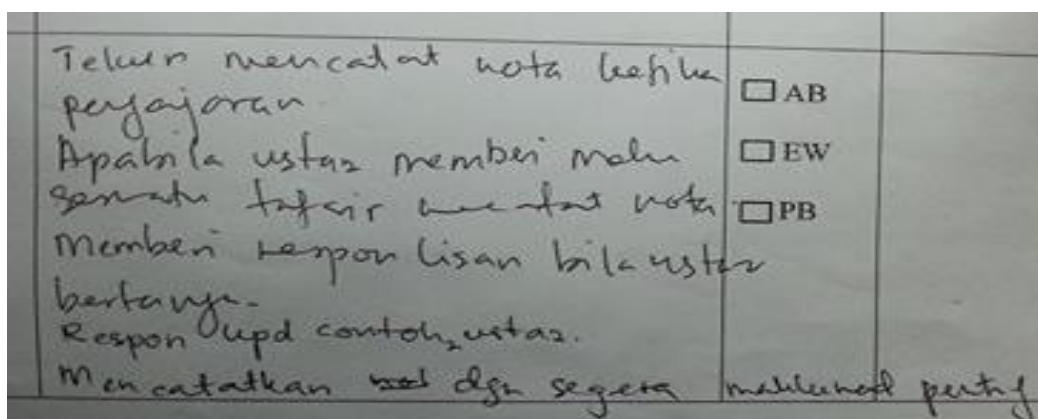 Tekun mencatat nota ketika
pengajaran
Apabila ustaz memberi
tafsir mencatat nota
Memberi respon lisan bila ustaz
bertanya.
Respon kpd contoh2 ustaz.
Mencatatkan dgn segera maklumat
AB
EW
PB